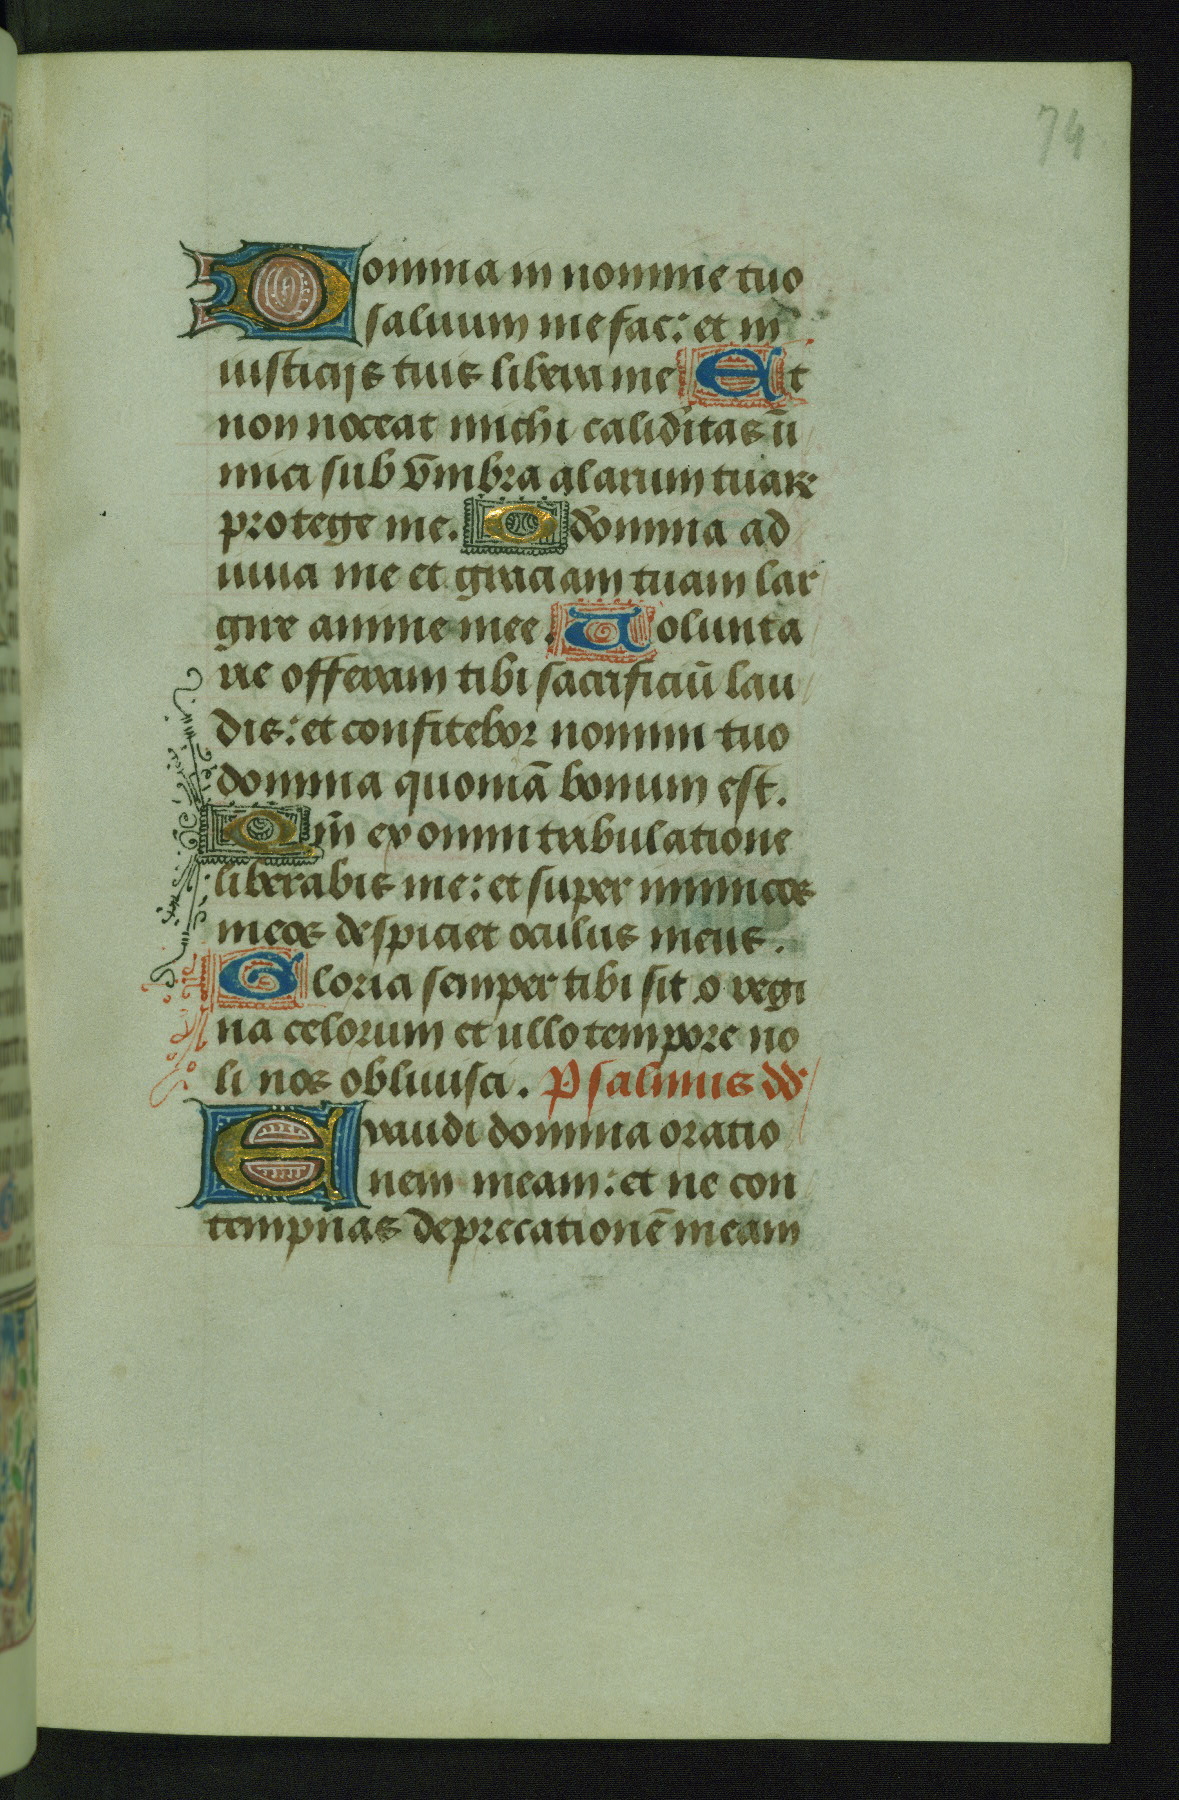 74
Domina in nomine tuo
saluum me fac: et in
iusticijs tuis libera me Et
non noceat michi caliditas īi
mici sub vmbra alarum tuaꝝ
protege me. O domina ad
iuua me et graciam tuam lar
gire anime mee. Volunta
rie offeram tibi sacrificiū lau
dis: et confitebor nomini tuo
domina quoniā bonum est.
Qm̄ ex omni tribulatione
liberabis me: et super inimicos
meos despiciet oculus meus.
Gloria semper tibi sit o regi
na celorum et ullo tempore no
li nos obliuisci. Psalmus dd
Exaudi domina oratio
nem meam: et ne con
tempnas deprecationē meam